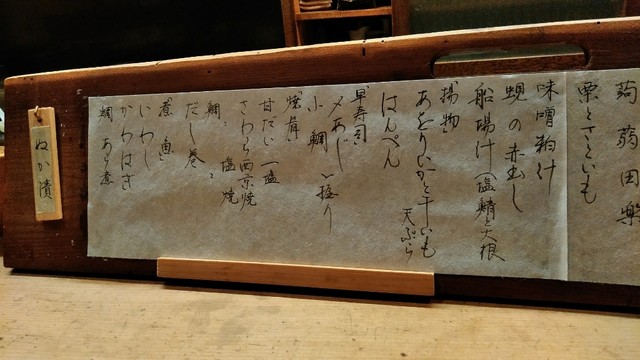 蒟蒻田楽
栗とさといも
味噌粕汁
蜆の赤出し
船場汁(塩鯖と大根
揚物
あをりいかと干いも
天ぷら
はんぺん
早寿司
〆あじ
小鯛 握り
焼肴
甘だい 一塩
さわら西京焼
鯛 塩焼
だし巻
煮魚
いわし
かわはぎ
鯛 あら煮
ぬか漬